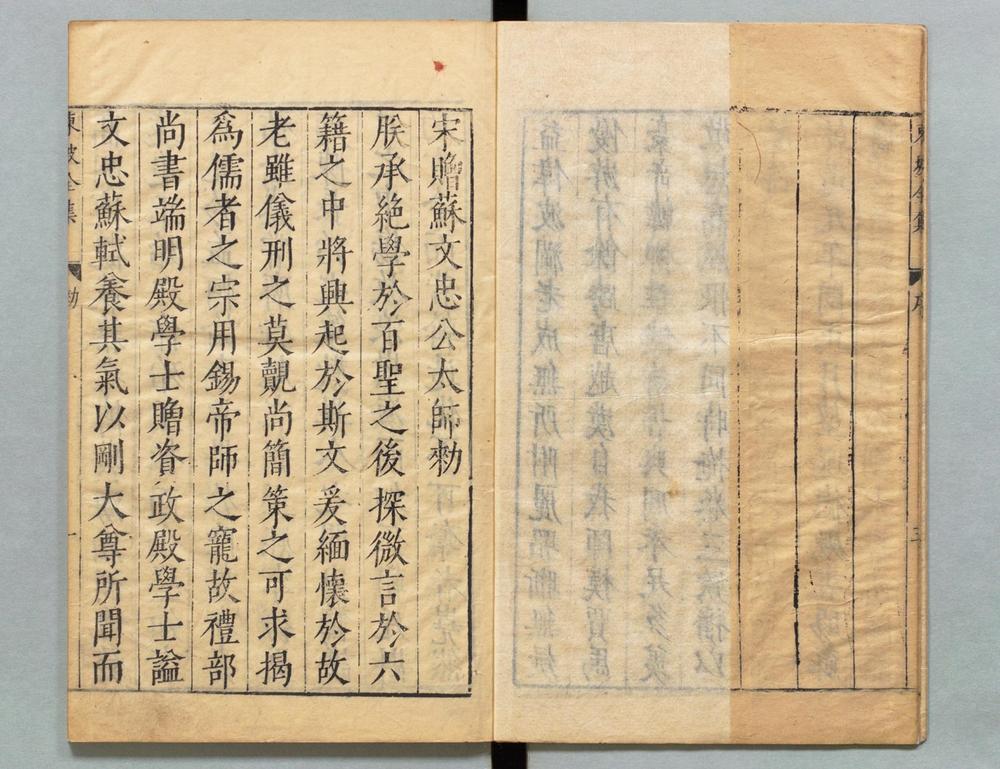 東坡全集 序 三
宋贈蘇文忠公太師勑
朕承絶學於百聖之後探微言於六
籍之中將興起於斯文爰緬懷於故
老雖儀刑之莫覿尚簡策之可求揭
爲儒者之宗用錫帝師之寵故禮部
尚書端明殿學士贈資政殿學士謚
文忠蘇軾養其氣以剛大尊所聞而
東坡全集 勑 一